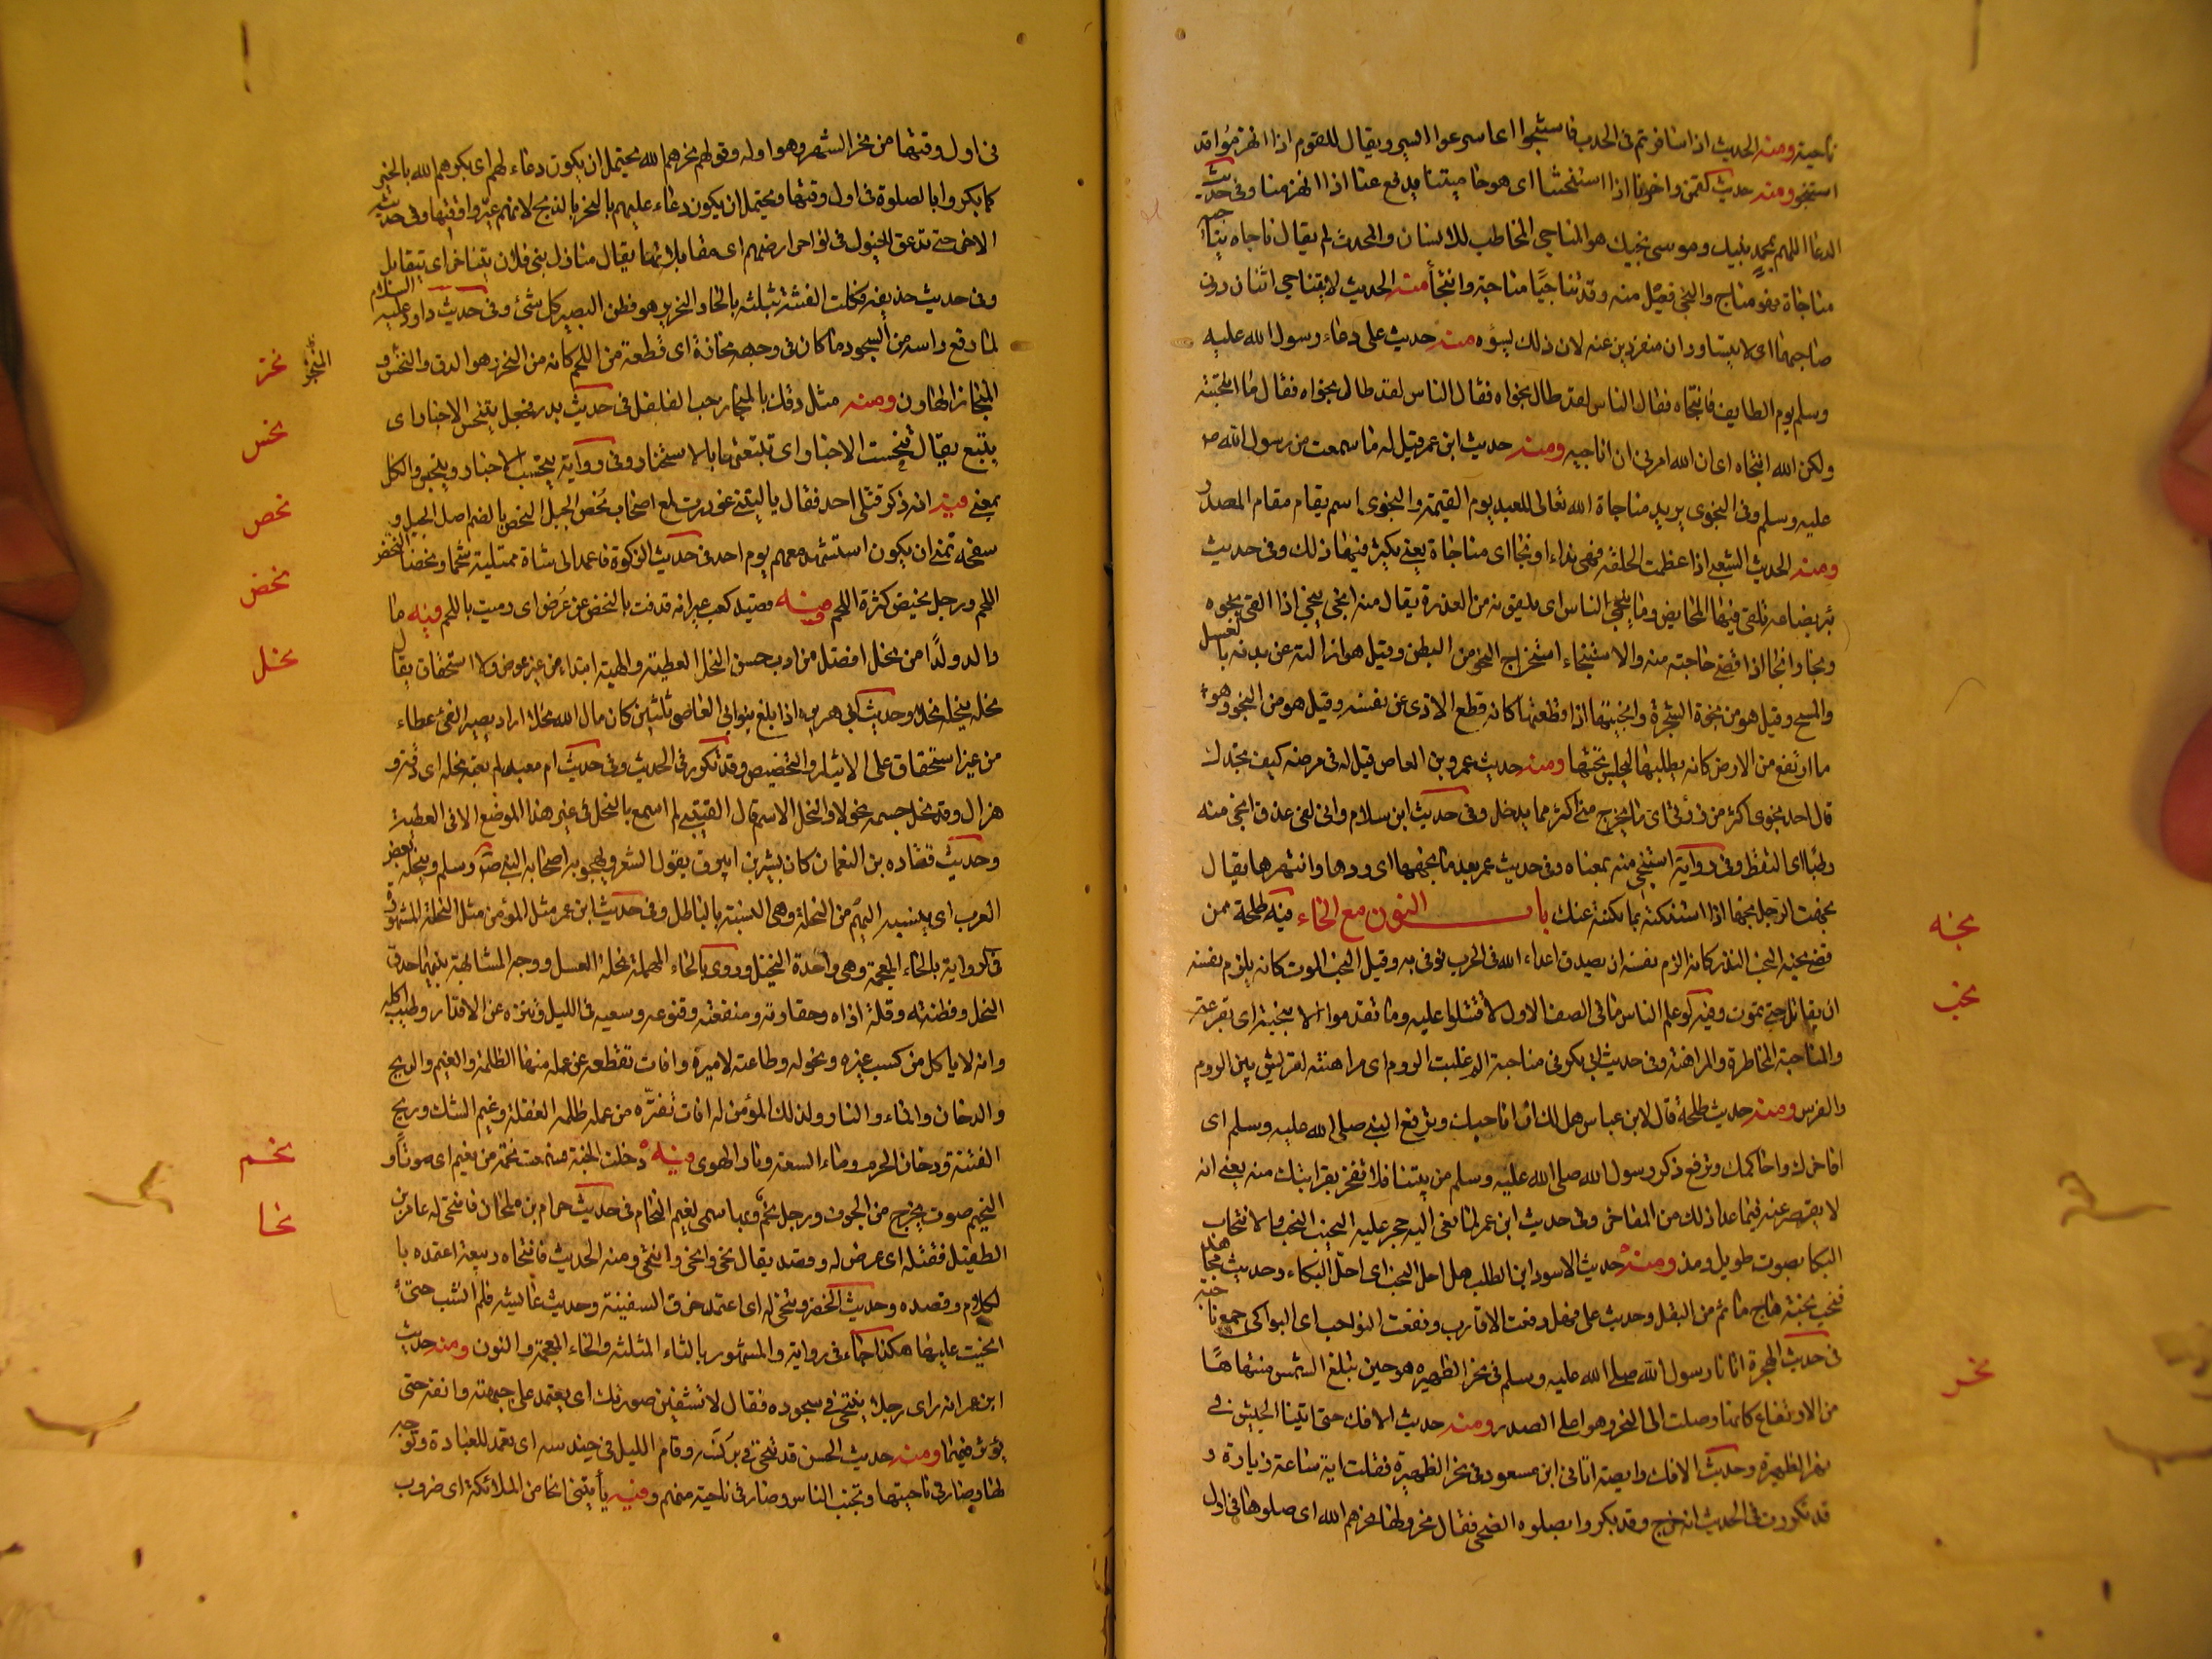 ناحية ومنه الحديث اذا سافرتم فى الجدب فاستنجوا اى اسرعوا السير ويقال للقوم اذا انهزموا قد
استنجوا ومنه حديث لقمن واخرنا اذا استنجينا اى هو حاميتنا يدفع عنا اذا انهزمنا وفى حديث
الدعا اللهم بمحمد نبيك وموسى نجيك هو المناجى المخاطب للانسان والمحدث له يقال ناجاه يناجيه
مناجاة فهو مناج والنجى فعيل منه وقد تناجيا مناجية وانتجأ منه الحديث لا يتناجى اثنان دون
صاحبهما اى لا يتساوران منفردين عنه لان ذلك يسؤه منه حديث على دعاه رسول الله عليه
وسلم يوم الطايف فانتجاه فقال الناس لقد طال نجواه فقال الناس لقد طال نجواه فقال ما انتجيته
ولكن الله انتجاه اى ان الله امرنى ان اناجيه ومنه حديث ابن عمر قيل له ما سمعت من رسول الله ص
عليه وسلم فى النجوى يريد مناجاة الله تعالى للعبد يوم القيمة والنجوى اسم يقام مقام المصدر
ومنه الحديث الشعبى اذا عظمت الحلقة فهى نداء او نجا اى مناجاة يعنى يكثر فيها ذلك وفى حديث
بئر بضاعة تلقى فيها المحايض وما ينجى الناس اى يلقونه من العذرة يقال منه انجى ينجى اذا القى نجوه
ونجا وانجا اذا قضى حاجته منه والاستنجاء استخراج النجو من البطن وقيل هو ازالته عن بدنه بالغسل
والمسح وقيل هو من نجوة الشجرة وانجيتها اذا قطعتها كانه قطع الاذى عن نفسه وقيل هو من النجو وهو
ما ارتفع من الارض كانه يطلبها ليجلس تحتها ومنه حديث عمرو بن العاص قيل له فى مرضه كيف تجدك
قال اجد نجوى اكثر من رزئى اى ما يخرج منى اكثر مما يدخل وفى حديث ابن سلام وانى لفى عذق انجى منه
رطبا اى التقط وفى رواية استنجى منه بمعناه وفى حديث عمر بعد ما نجهها اى ردها وانتهرها يقال
نجهت الرجل نجها اذا استنكبته بما يكفه عنك باب النون مع الحاء فيه طلحة ممن
قضى نحبه النحب النذر كانه الزم نفسه ان يصدق اعداء الله فى الحرب فوفى به وقيل النحب الموت كانه يلزم نفسه
ان يقاتل حتى يموت وفيه لو علم الناس ما فى الصف الاول لاقتتلوا عليه وما تقدموا الا بنحبة اى بقرعة
والمناحبة المخاطرة والمراهنة وفى حديث ابى بكر فى مناحبة الم غلبت الروم اى مراهنته لقريش بين الروم
والفرس ومنه حديث طلحة قال لابن عباس هل لك ان اناحبك وترفع النبى صلى الله عليه وسلم اى
افاخرك واحاكمك وترفع ذكر رسول الله صلى الله عليه وسلم من بيننا فلا تفخر بقرابتك منه يعنى انه
لا يقصر عنه فيما عدا ذلك من المفاخر وفى حديث ابن عمر لما نعى اليه حجر عليه النحيب النحب والانتحاب
البكا بصوت طويل ومد ومنه حديث الاسود ابن المطلب هل احل النحب اى احل البكاء وحديث مجاهد
فنحب نحبة هاج ما ثم من البقل وحديث على فهل دفعت الاقارب ونفعت النواحب اى البواكى جمع ناحبة
فى حديث الهجرة اتانا رسول الله صلى الله عليه وسلم فى نحر الظهيرة هو حين تبلغ الشمس منتهاها
من الارتفاع كانها وصلت الى النحر وهو اعلى الصدر ومنه حديث الافك حتى اتينا الجيش فى
نحر الظهيرة وحديث الافك وابصة اتانى ابن مسعود فى نحر الظهيرة فقلت اية ساعة زيارة و
قد تكررت فى الحديث انه خرج وقد بكروا بصلوه الضحى فقال نحروها نحرهم الله اى صلوها فى اول
نجه
نحب
نحر
فى اول وقتها من نحر الشهر وهو اوله وقولهم نحرهم الله يحتمل ان يكون دعاء لهم اى بكرهم الله بالخير
كما بكروا بالصلوة فى اول وقتها ويحتمل ان يكون دعاء عليهم بالنحر بالذبح لانهم غيروا وقتها وفى حديثه
الاخر حتى تدعق الخيول فى نواحر ارضهم اى مقابلاتها يقال منازل بنى فلان تتناحر اى تتقابل
وفى حديث حذيفة وكلت الفتنة بثلثة بالحاد النحرير هو فطن البصير كل شئ وفى حديث داود عليه السلام
لما رفع راسه من السجود ما كان فى وجهه نحازة اى قطعة من اللحم كانه من النحز وهو الدق والنخس و
المنحاز الهاون ومنه مثل دقك بالمنحاز حب الفلفل فى حديث بدر فجعل يتنحس الاخبار اى
يتتبع يقال تنحست الاخبار اى تتبعتها بالاستخبار وفى رواية يتحسب الاخبار ويتحسس والكل
بمعنى فيه انه ذكر قتلى احد فقال يا ليتنى غودرت مع اصحاب نحص الجبل النحص بالضم اصل الجبل و
سفحه تمنى ان يكون استشهد معهم يوم احد فى حديث الزكوة فاعمد الى شاة ممتلية شحما ونحضا النحض
اللحم ورجل نحيض كثرة اللحم ومنه قصيد كعب عيرانة قذفت بالنحض عن عرض اى رميت باللحم فيه ما
والد ولدا من نحل افضل من ادب حسن النحل العطية والهبة ابتداء من غير عوض ولا استحقاق يقال
نحله ينحله نحلا وحديث ابى هريرة اذا بلغ بنو ابى العاص ثلثين كان مال الله نحلا اراد يصير الفئ عطاء
من غير استحقاق على الايثار والتخصيص وقد تكرر فى الحديث وفى حديث ام معبد لم تعبه نحله اى دقة و
هزال وقد نحل جسمه نحولا والنحل الاسم قال القتيبى لم اسمع بالنحل فى غير هذا الموضع الا فى العطية
وحديث قتاده بن النعمان كان بشير بن ابيرق يقول الشعر ويهجو به اصحاب النبى ص وسلم وينحله بعض
العرب اى ينسبه اليهم من النحلة وهى النسبة بالباطل وفى حديث ابن عمر مثل المؤمن مثل النحلة المشهور
فى الرواية بالخاء المعجمة وهى واحدة النخل وروى بالحاء المهملة نحلة العسل ووجه المشابهة بينهما حذق
النحل وفطنته وقلة اذاه وحقارته ومنفعته وقنوعه وسعيه فى الليل وتنزه عن الاقذار وطيب اكله
وانه لا ياكل من كسب غيره ونحوله وطاعته لاميره وافات تقطعه عن عمله منها الظلمة والغيم والريح
والدخان والماء والنار وكذلك المؤمن له افات تفتره من عمله ظلمه الغفلة وغيم الشك وريح
الفتنة ودخان الحرم وماء السعة ونار الهوى وفيه دخلت الجنة فسمعت نحمة من نعيم اى صوتا و
النحيم صوت يخرج من الجوف ورجل نحم وبها سمى نعيم النحام فى حديث حرام بن ملحان فانتحى له عامر بن
الطفيل فقتله اى عرض له وقصد يقال نحى وانحى وانتحى ومنه الحديث فانتحاه ربيعة اعتمده با
لكلام وقصده وحديث الخضر وتنحى له اى اعتمد خرق السفينة وحديث عايشه فلم انشب حتى
انحيت عليها هكذا جاء فى رواية والمشهور بالثاء المثلثه والخاء المعجمة والنون ومنه حديث
ابن عمر انه راى رجلا ينتحى فى سجوده فقال لا تشنين صورتك اى يعتمد على جبهته وانفه حتى
يؤثر فيهما ومنه حديث الحسن قد تنحى فى برنسه وقام الليل فى حندسه اى تعمد للعبادة وتوجه
لها وصار فى ناحيتها وتجنب الناس وصار فى ناحية منهم وفيه يأتينى انحا من الملائكة اى ضروب
نحز
نحس
نحص
نحض
نحل
نحم
نحا